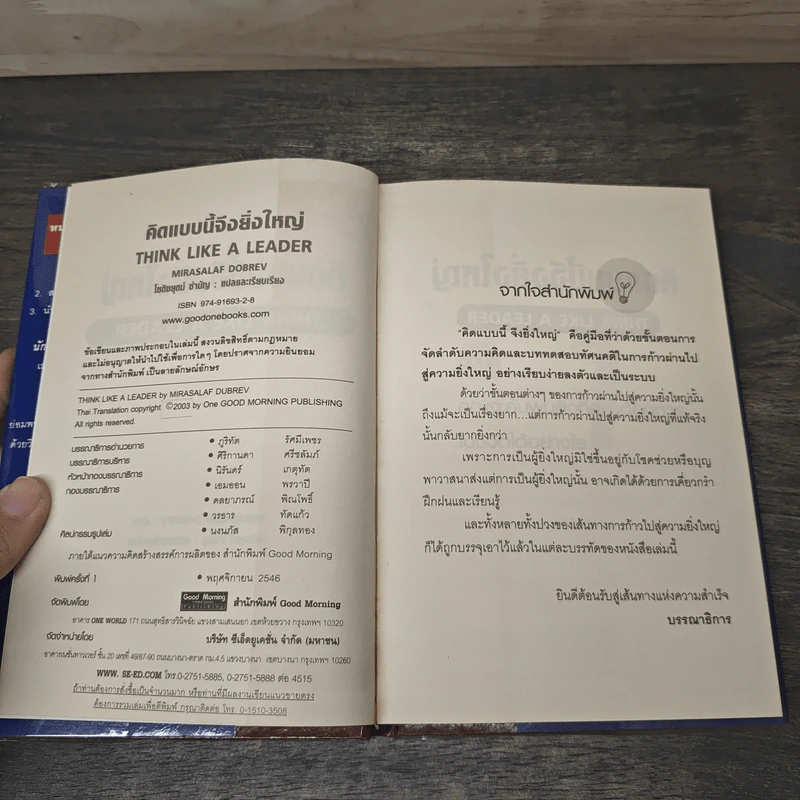 คิดแบบนี้จึงยิ่งใหญ่
THINK LIKE A LEADER
MIRASALAF DOBREV
โชติชยุตม์ ชำนัญ : แปลและเรียบเรียง
ISBN 974-91693-2-8
www.goodonebooks.com
ข้อเขียนและภาพประกอบในเล่มนี้ สงวนลิขสิทธิ์ตามกฎหมาย
และไม่อนุญาตให้นำไปใช้เพื่อการใดๆ โดยปราศจากความยินยอม
จากทางสำนักพิมพ์ เป็นลายลักษณ์อักษร
THINK LIKE A LEADER by MIRASALAF DUBREV
Thai Translation copyright ©2003 by One GOOD MORNING PUBLISHING
All rights reserved.
บรรณาธิการอำนวยการ • ภูริทัต รัศมีเพชร
บรรณาธิการบริหาร • ศิริกานดา ศรีชลัมภ์
หัวหน้ากองบรรณาธิการ • นิรันดร์ เกตุทัต
กองบรรณาธิการ • เอมออน พรวาปี
• ดลยาภรณ์ พิณโพธิ์
• วรธาร ทัดแก้ว
ศิลปกรรมรูปเล่ม • นงนภัส พิกุลทอง
ภายใต้แนวความคิดสร้างสรรค์การผลิตของ สำนักพิมพ์ Good Morning
พิมพ์ครั้งที่ 1 • พฤศจิกายน 2546
จัดพิมพ์โดย Good Morning Publishing สำนักพิมพ์ Good Morning
อาคาร ONE WORLD 171 ถนนสุทธิสารวินิจฉัย แขวงสามเสนนอก เขตห้วยขวาง กรุงเทพฯ 10320
จัดจำหน่ายโดย บริษัท ซีเอ็ดยูเคชั่น จำกัด (มหาชน)
อาคารเนชั่นทาวเวอร์ ชั้น 20 เลขที่ 49/87-90 ถนนบางนา-ตราด กม.4.5 แขวงบางนา เขตบางนา กรุงเทพฯ 10260
WWW. SE-ED.COM โทร.0-2751-5885, 0-2751-5888 ต่อ 4515
ถ้าท่านต้องการสั่งซื้อเป็นจำนวนมาก หรือท่านที่มีผลงานเขียนแนวขายตรง
ต้องการรวมเล่มเพื่อตีพิมพ์ กรุณาติดต่อ โทร. 0-1510-3508
จากใจสำนักพิมพ์
"คิดแบบนี้ จึงยิ่งใหญ่" คือคู่มือที่ว่าด้วยขั้นตอนการ
จัดลำดับความคิดและบททดสอบทัศนคติในการก้าวผ่านไป
สู่ความยิ่งใหญ่ อย่างเรียบง่ายลงตัวและเป็นระบบ
ด้วยว่าขั้นตอนต่างๆ ของการก้าวผ่านไปสู่ความยิ่งใหญ่นั้น
ถึงแม้จะเป็นเรื่องยาก...แต่การก้าวผ่านไปสู่ความยิ่งใหญ่ที่แท้จริง
นั้นกลับยากยิ่งกว่า
เพราะการเป็นผู้ยิ่งใหญ่มิใช่ขึ้นอยู่กับโชคช่วยหรือบุญ
พาวาสนาส่งแต่การเป็นผู้ยิ่งใหญ่นั้น อาจเกิดได้ด้วยการเคี่ยวกรำ
ฝึกฝนและเรียนรู้
และทั้งหลายทั้งปวงของเส้นทางการก้าวไปสู่ความยิ่งใหญ่
ก็ได้ถูกบรรจุเอาไว้แล้วในแต่ละบรรทัดของหนังสือเล่มนี้
ยินดีต้อนรับสู่เส้นทางแห่งความสำเร็จ
บรรณาธิการ